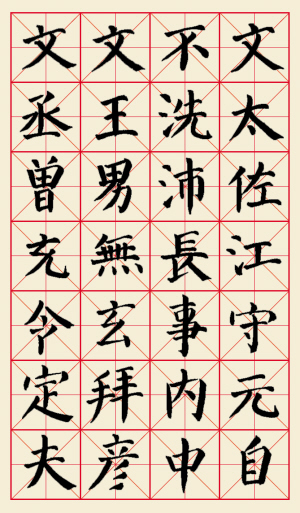 文太佐江守元自
不洗沛長事内中
文王男無玄拜彦
文丞曽充令定夫